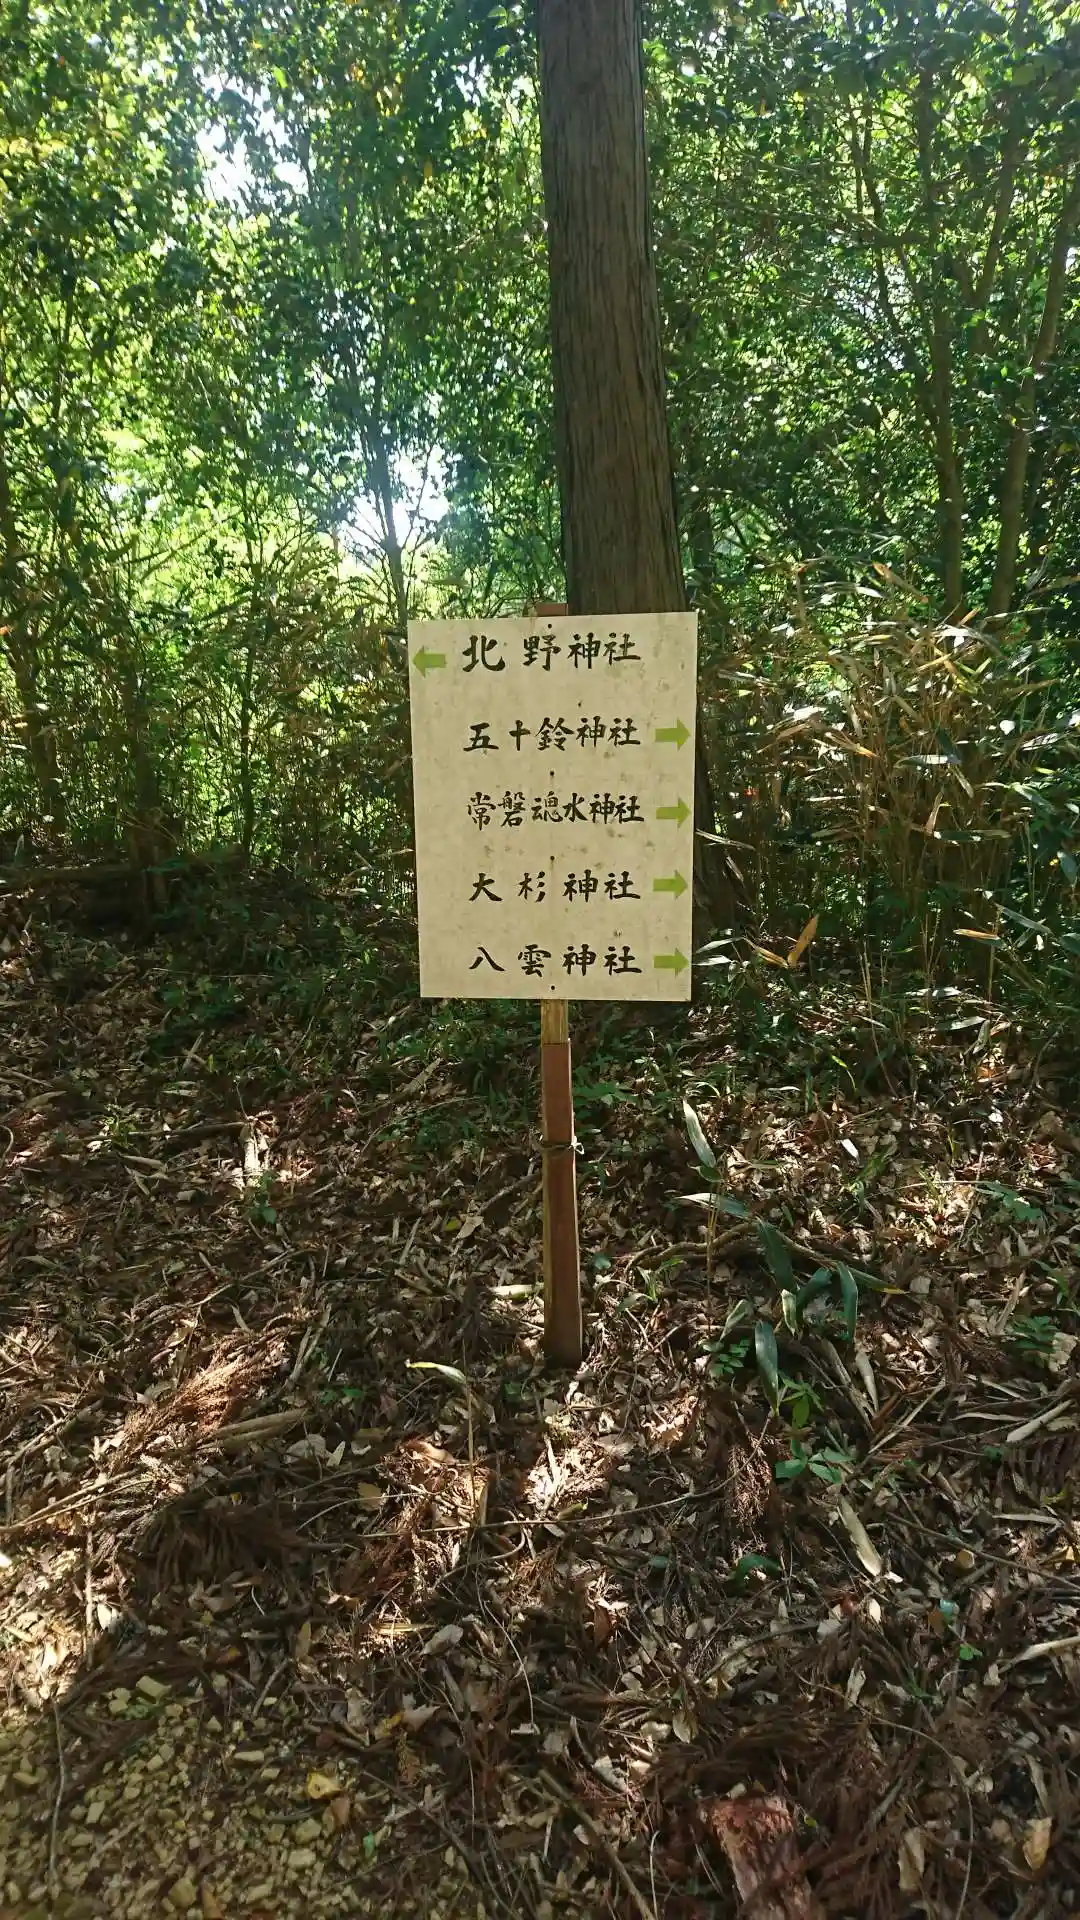 ← 北野神社
五十鈴神社 →
常磐魂水神社 →
大杉神社 →
八雲神社 →